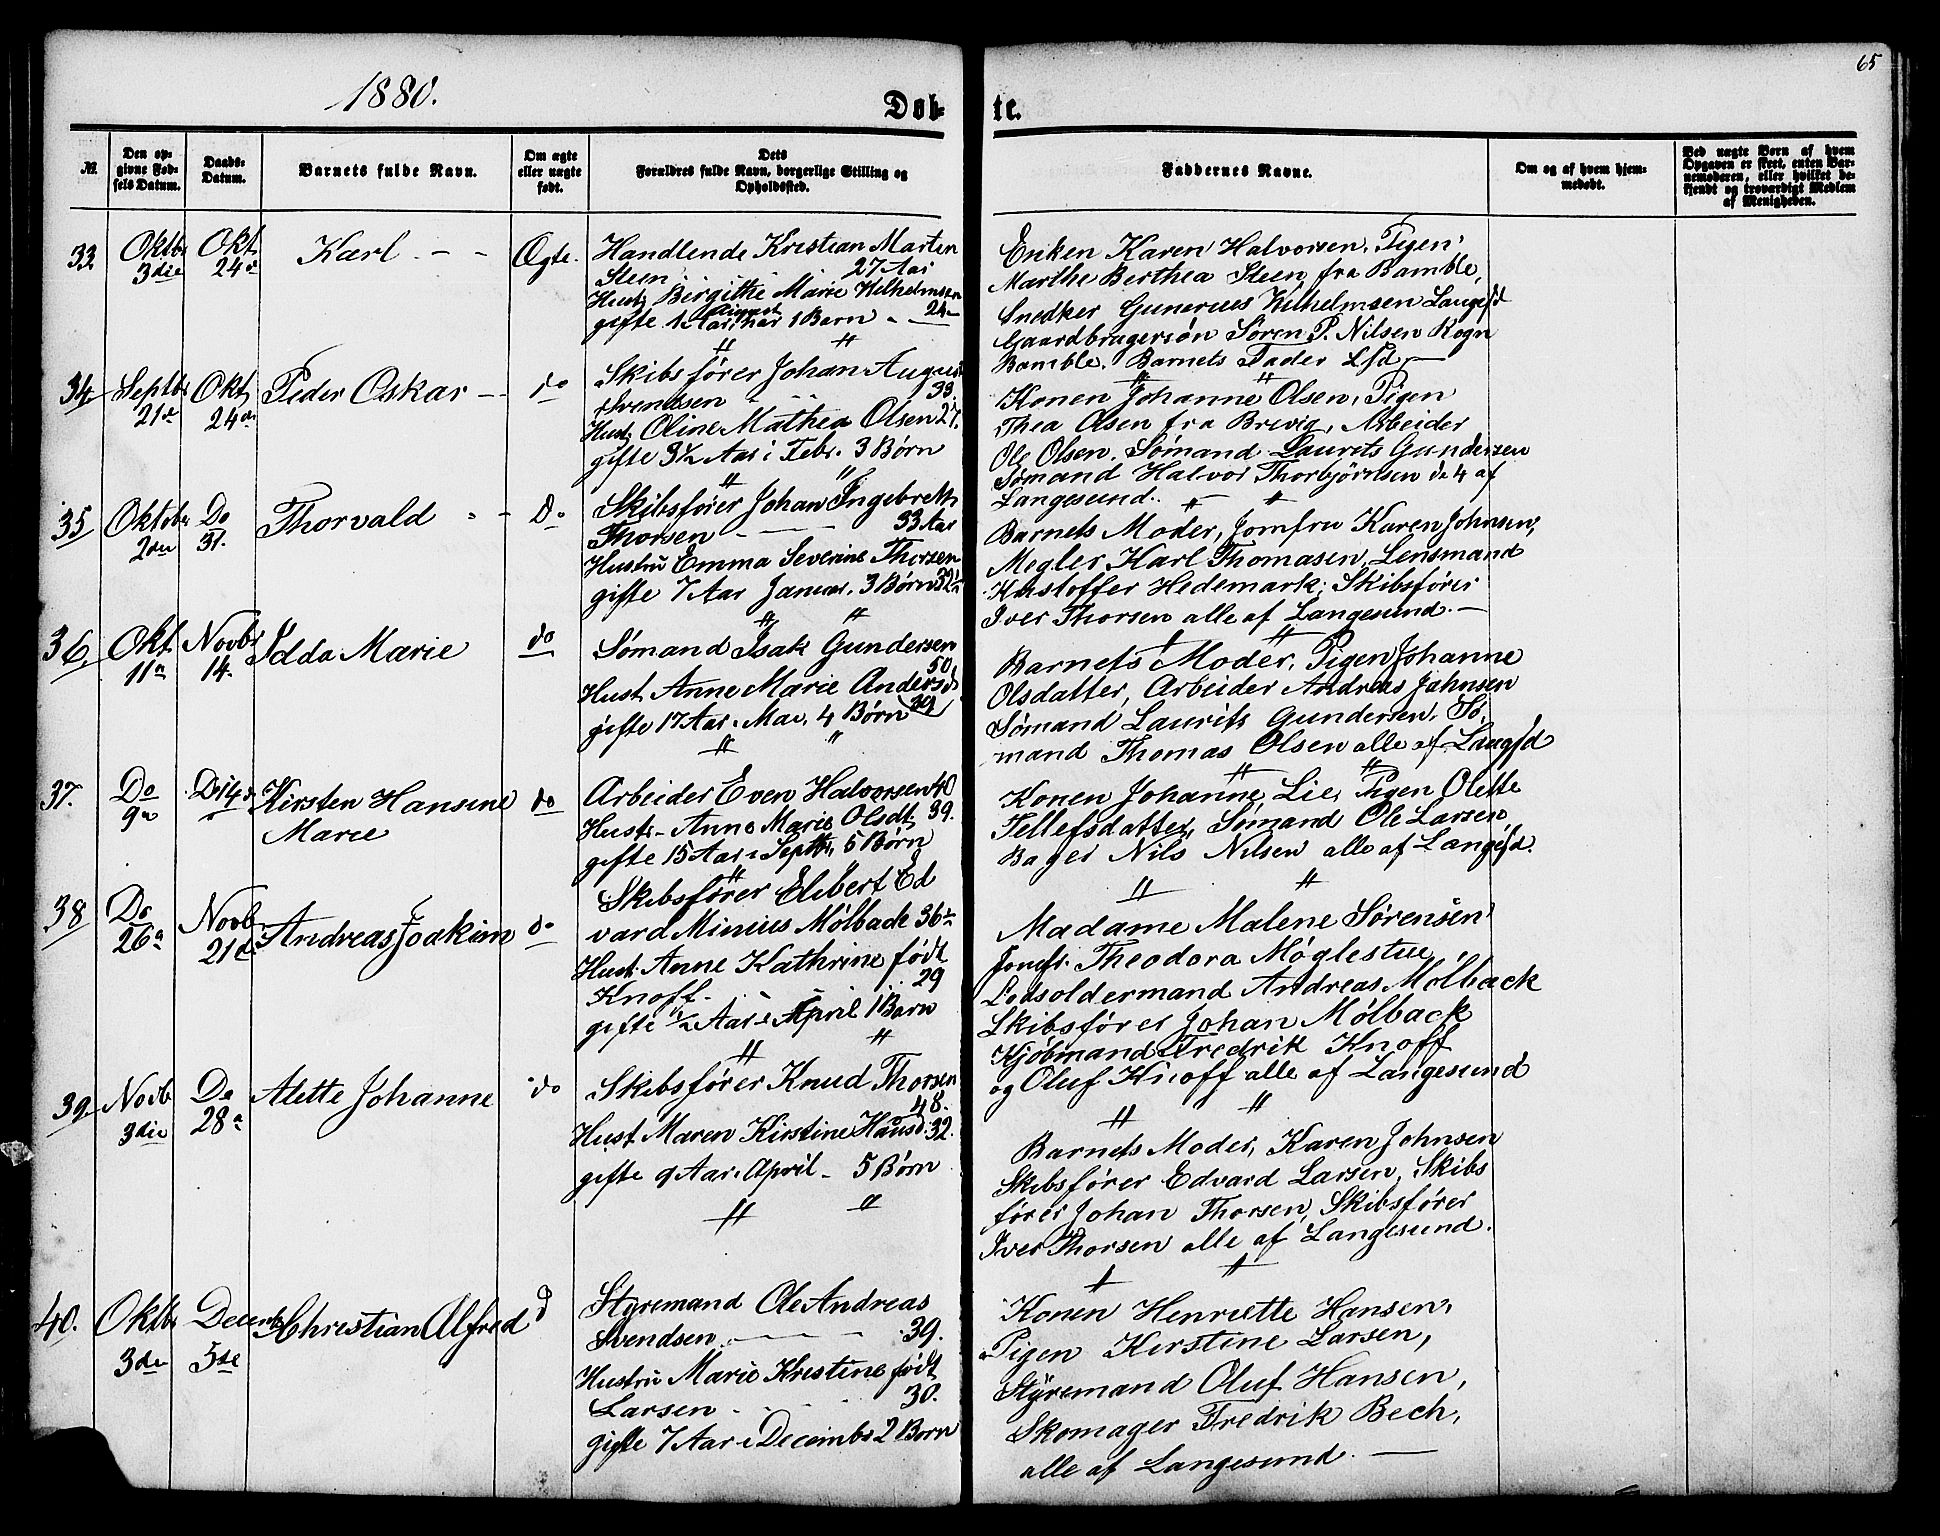 65
1880.
Døb- te.
No. Den opgivne Fødsels Datum. Daabs-Datum. Barnets fulde Navn. Om ægte eller uægte født. Dets Forældres fulde Navn, borgerlige Stilling og Opholdssted. Faddernes Navne. Om og af hvem hjemmedøbt. Ved uægte Børn af hvem Opgaven er skeet, enten Barnemoderen, eller hvilket bekjendt og troværdigt Medlem af Menigheden.
33 Oktbr 3die Okt. 24de Karl - - Ægte.
Handlende Kristian Martin
Steen 27 Aar
Hust. Birgitthe Marie Wilhelmsen 24
gifte 1 Aar August har 1 Barn
Karen Halvorsen. Pigen
Marthe Berthea Steen fra Bamble,
Snedker Gunerius Wilhelmsen Langesd
Gaardbrugersøn Søren P. Nilsen Rogn
Bamble. Barnets Fader Lsd
34 Septbr 21de Okt 24de Peder Oskar - - do
Skibsfører Johan August
Svendsen 33.
Hust. Oline Mathea Olsen 27.
gifte 3½ Aar i Febr. 3 Børn
Konen Johanne Olsen, Pigen
Thea Olsen fra Brevig, Arbeider
Ole Olsen. Sømand Laurits Gundersen
Sømand Halvor Thorbjörnsen de 4 af
Langesund.
35 Oktobr 2den Do 31. Thorvald - - Do
Skibsfører Johan Ingebreth
Thorsen - 33 Aar
Hustru Emma Severine Thorsen
gifte 7 Aar Januar. 3 Børn 32½
Barnets Moder, Jomfru Karen Johnsen,
Megler Karl Thomasen, Lensmand
Kristoffer Hedemark, Skibsfører
Iver Thorsen alle af Langesund. -
36 Okt 11te Novbr 14. Idda Marie do
Sømand Isak Gundersen
50
Hust Anne Marie Andersd
gifte 17 Aar i Mai, 4 Børn 39
Barnets Moder, Pigen Johanne
Olsdatter, Arbeider Andreas Johnsen
Sømand Laurits Gundersen, Sø,
mand Thomas Olsen alle af Langsd
37. Do 9de Do 14de Kirsten Hansine do
Marie
Arbeider Even Halvorsen 40
Hustr - Anne Marie Olsdt. 39.
gifte 15 Aar i Septbr. 5 Børn
Konen Johanne Lie, Pigen Olette
Tellefsdatter, Sømand Ole Larsen,
Bager Nils Nilsen alle af Langesd.
38 Do 26de Novb 21de Andreas Joakim do
Skibsfører Elibert Ed
vard Minius Mølback 36
Hust. Anne Kathrine født
Knoff. 29
gifte ½ Aar i April 1 Barn
Madame Malene Sørensen
Jomfr. Theodora Møglestue
Lodsoldermand Andreas Mølback
Skibsfører Johan Mølback
Kjøbmand Fredrik Knoff
og Oluf Knoff alle af Langesund
39 Novb 3die Do 28de Alette Johanne do
Skibsfører Knud Thorsen
48.
Hust Maren Kirstine Hansd. 32.
gifte 9 Aar i April - 5 Børn
Barnets Moder, Karen Johnsen
Skibsfører Edvard Larsen, Skibs
fører Johan Thorsen, Skibsfører
Iver Thorsen alle af Langesund.
40. Oktbr 3die Decembr 5te Christian Alfred do
Styremand Ole Andreas
Svendsen 39.
Hustru Marie Kristine født
Larsen 30.
gifte 7 Aar i Decembr 2 Børn
Konen Henriette Hansen,
Pigen Kirstine Larsen,
Styremand Oluf Hansen,
Skomager Fredrik Bech,
alle af Langesund. -